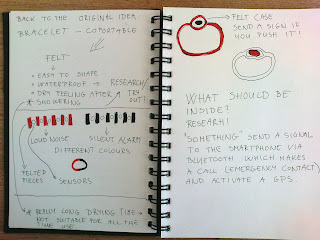 BACK TO THE ORIGINAL IDEA
BRACELET - COFORTABLE
FELT
• EASY TO SHAPE
• WATERPROOF → RESEARCH/
• DRY FEELING AFTER TRY
* SHOWERING OUT!
LOUD NOISE SILENT ALARM
DIFFERENT COLOURS
FELTED
PIECES SENSORS
* REALLY LONG DRYING TIME -
NOT SUITABLE FOR ALL THE
TIME USE
FELT CASE
SEND A SIGN IF
YOU PUSH IT!
WHAT SHOULD BE
INSIDE?
RESEARH!
"SOMETHING" SEND A SIGNAL
TO THE SMARTPHONE VIA
BLUETOOTH WHICH MAKES
A CALL (EMERGENCY CONTACT)
AND ACTIVATE A GPS.